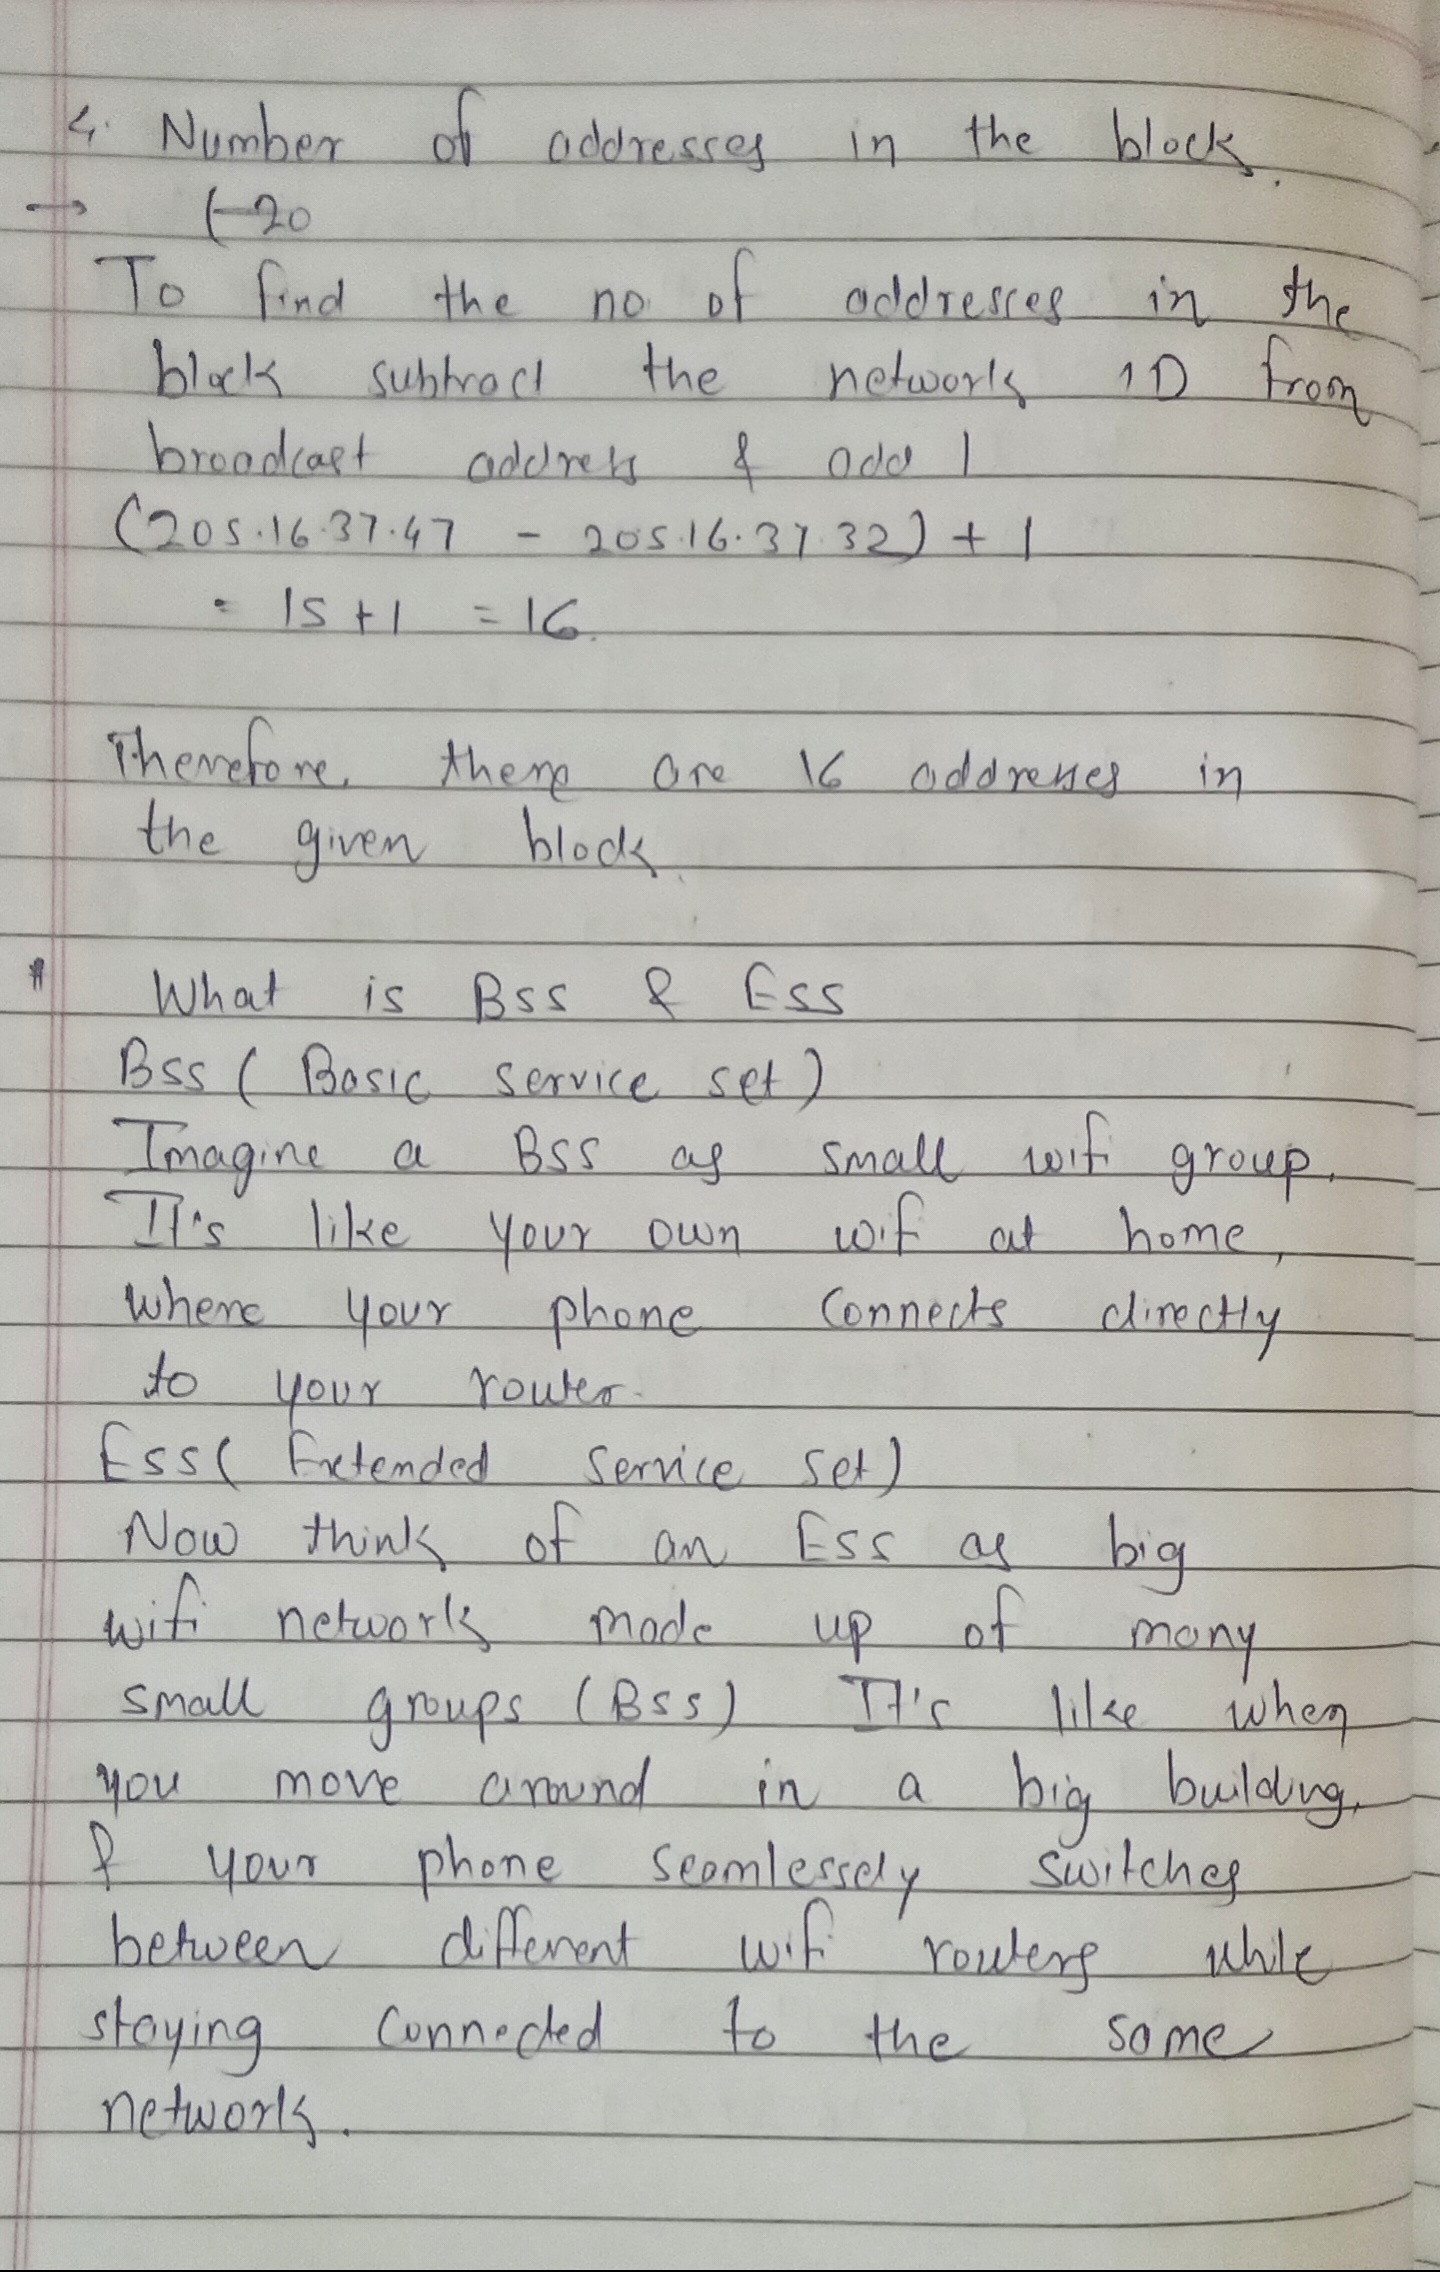 4. Number of addresses in the block.
→ (-20
To find the no. of addresses in the
block subtract the network ID from
broadcast address & add 1
(205.16.37.47 - 205.16.37.32) + 1
= 15 + 1 = 16.
Therefore, there are 16 addresses in
the given block.
* What is BSS & ESS
BSS ( Basic service set )
Imagine a BSS as small wifi group.
It's like your own wif at home,
where your phone connects directly
to your router.
ESS ( Extended Service Set )
Now think of an ESS as big
wifi network made up of many
small groups (BSS) It's like when
you move around in a big building,
& your phone seamlessely switches
between different wifi routers while
staying connected to the same
network.